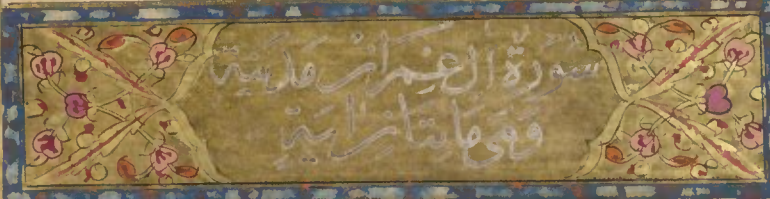 سُورَة ال عِمرَان مَدَنِيَة
وَهِيَ مَايتَا نِ ايَةٍ